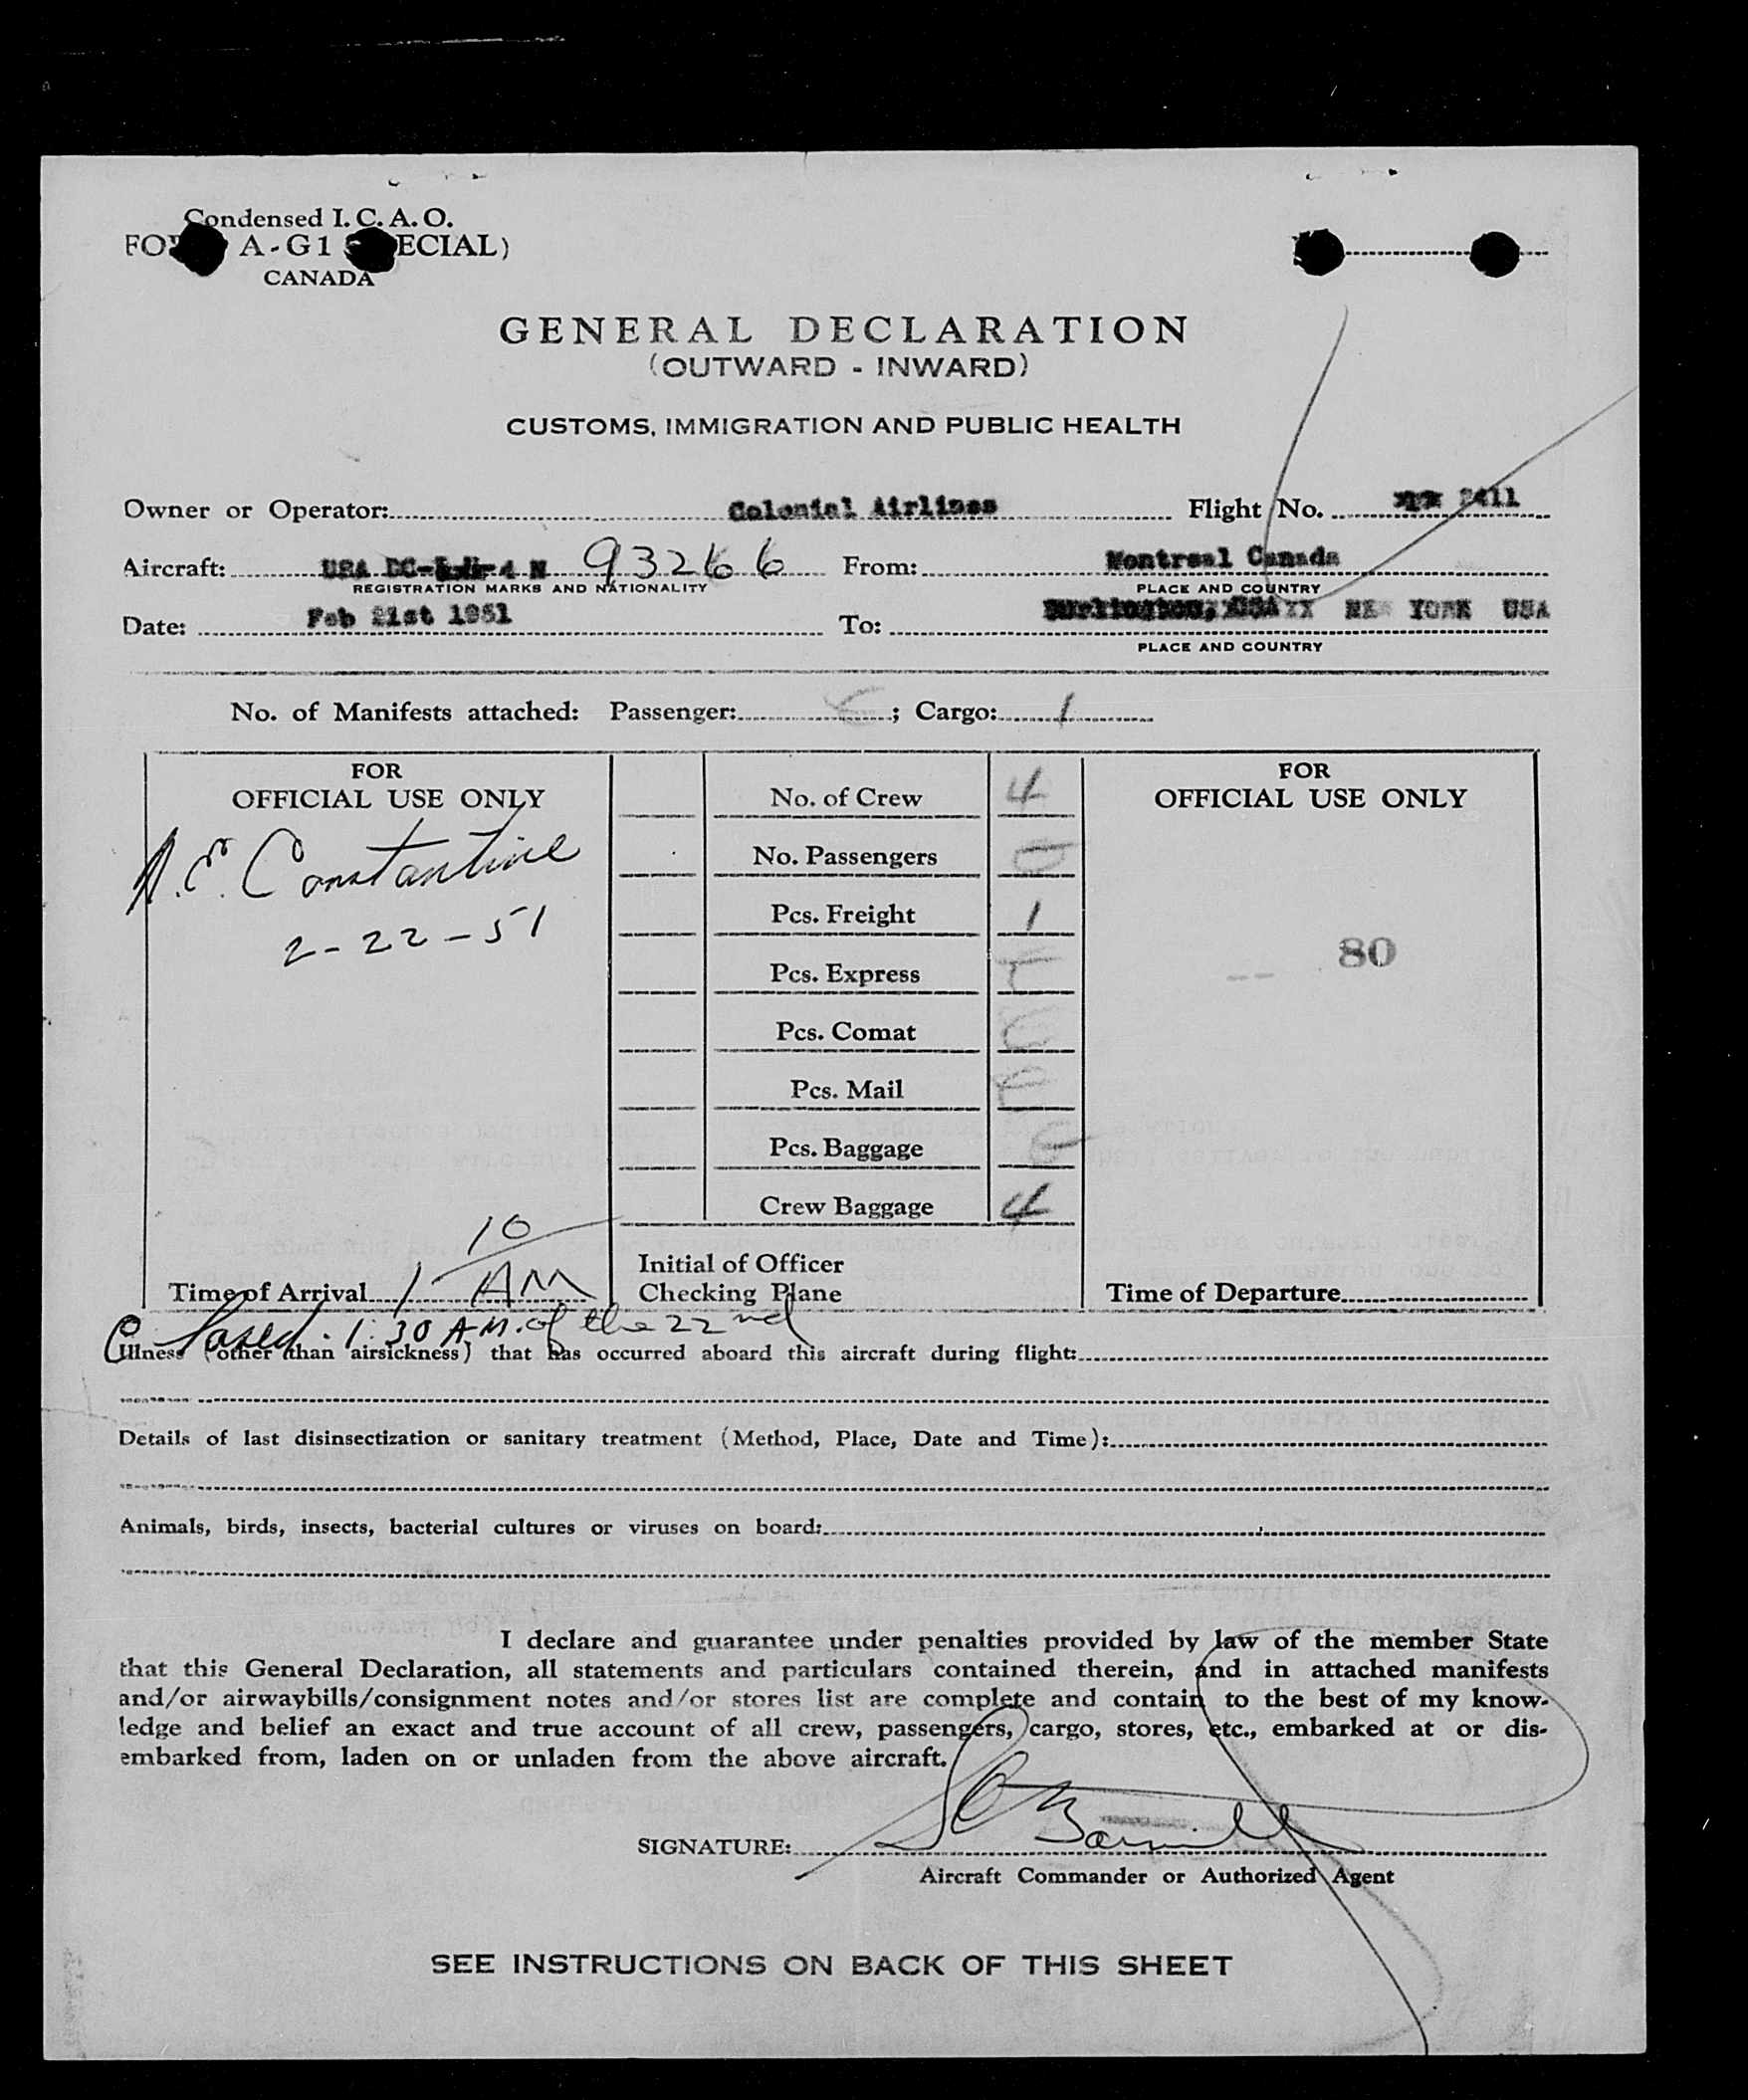 Condensed I. C. A. O.
A-G1
CANADA
GENERAL DECLARATION
(OUTWARD - INWARD)
CUSTOMS, IMMIGRATION AND PUBLIC HEALTH
Owner or Operator: Colonial Airlines Flight No. 2411
Aircraft: USA DC- 4 N 93266 From: Montreal Canada
REGISTRATION MARKS AND NATIONALITY PLACE AND COUNTRY
Date: Feb 21st 1951 To: Burlington, USA NEW YORK USA
PLACE AND COUNTRY
No. of Manifests attached: Passenger: ; Cargo: 1
FOR
OFFICIAL USE ONLY
Constantine
2-22-51
10
Time of Arrival 1 AM
No. of Crew 4
No. Passengers
Pcs. Freight 1
Pcs. Express
Pcs. Comat
Pcs. Mail
Pcs. Baggage
Crew Baggage 4
Initial of Officer
Checking Plane
FOR
OFFICIAL USE ONLY
80
Time of Departure
1:30 A.M. of the 22nd
Illness (other than airsickness) that has occurred aboard this aircraft during flight:
Details of last disinsectization or sanitary treatment (Method, Place, Date and Time):
Animals, birds, insects, bacterial cultures or viruses on board:
I declare and guarantee under penalties provided by law of the member State
that this General Declaration, all statements and particulars contained therein, and in attached manifests
and/or airwaybills/consignment notes and/or stores list are complete and contain to the best of my know-
ledge and belief an exact and true account of all crew, passengers, cargo, stores, etc., embarked at or dis-
embarked from, laden on or unladen from the above aircraft.
SIGNATURE:
Aircraft Commander or Authorized Agent
SEE INSTRUCTIONS ON BACK OF THIS SHEET